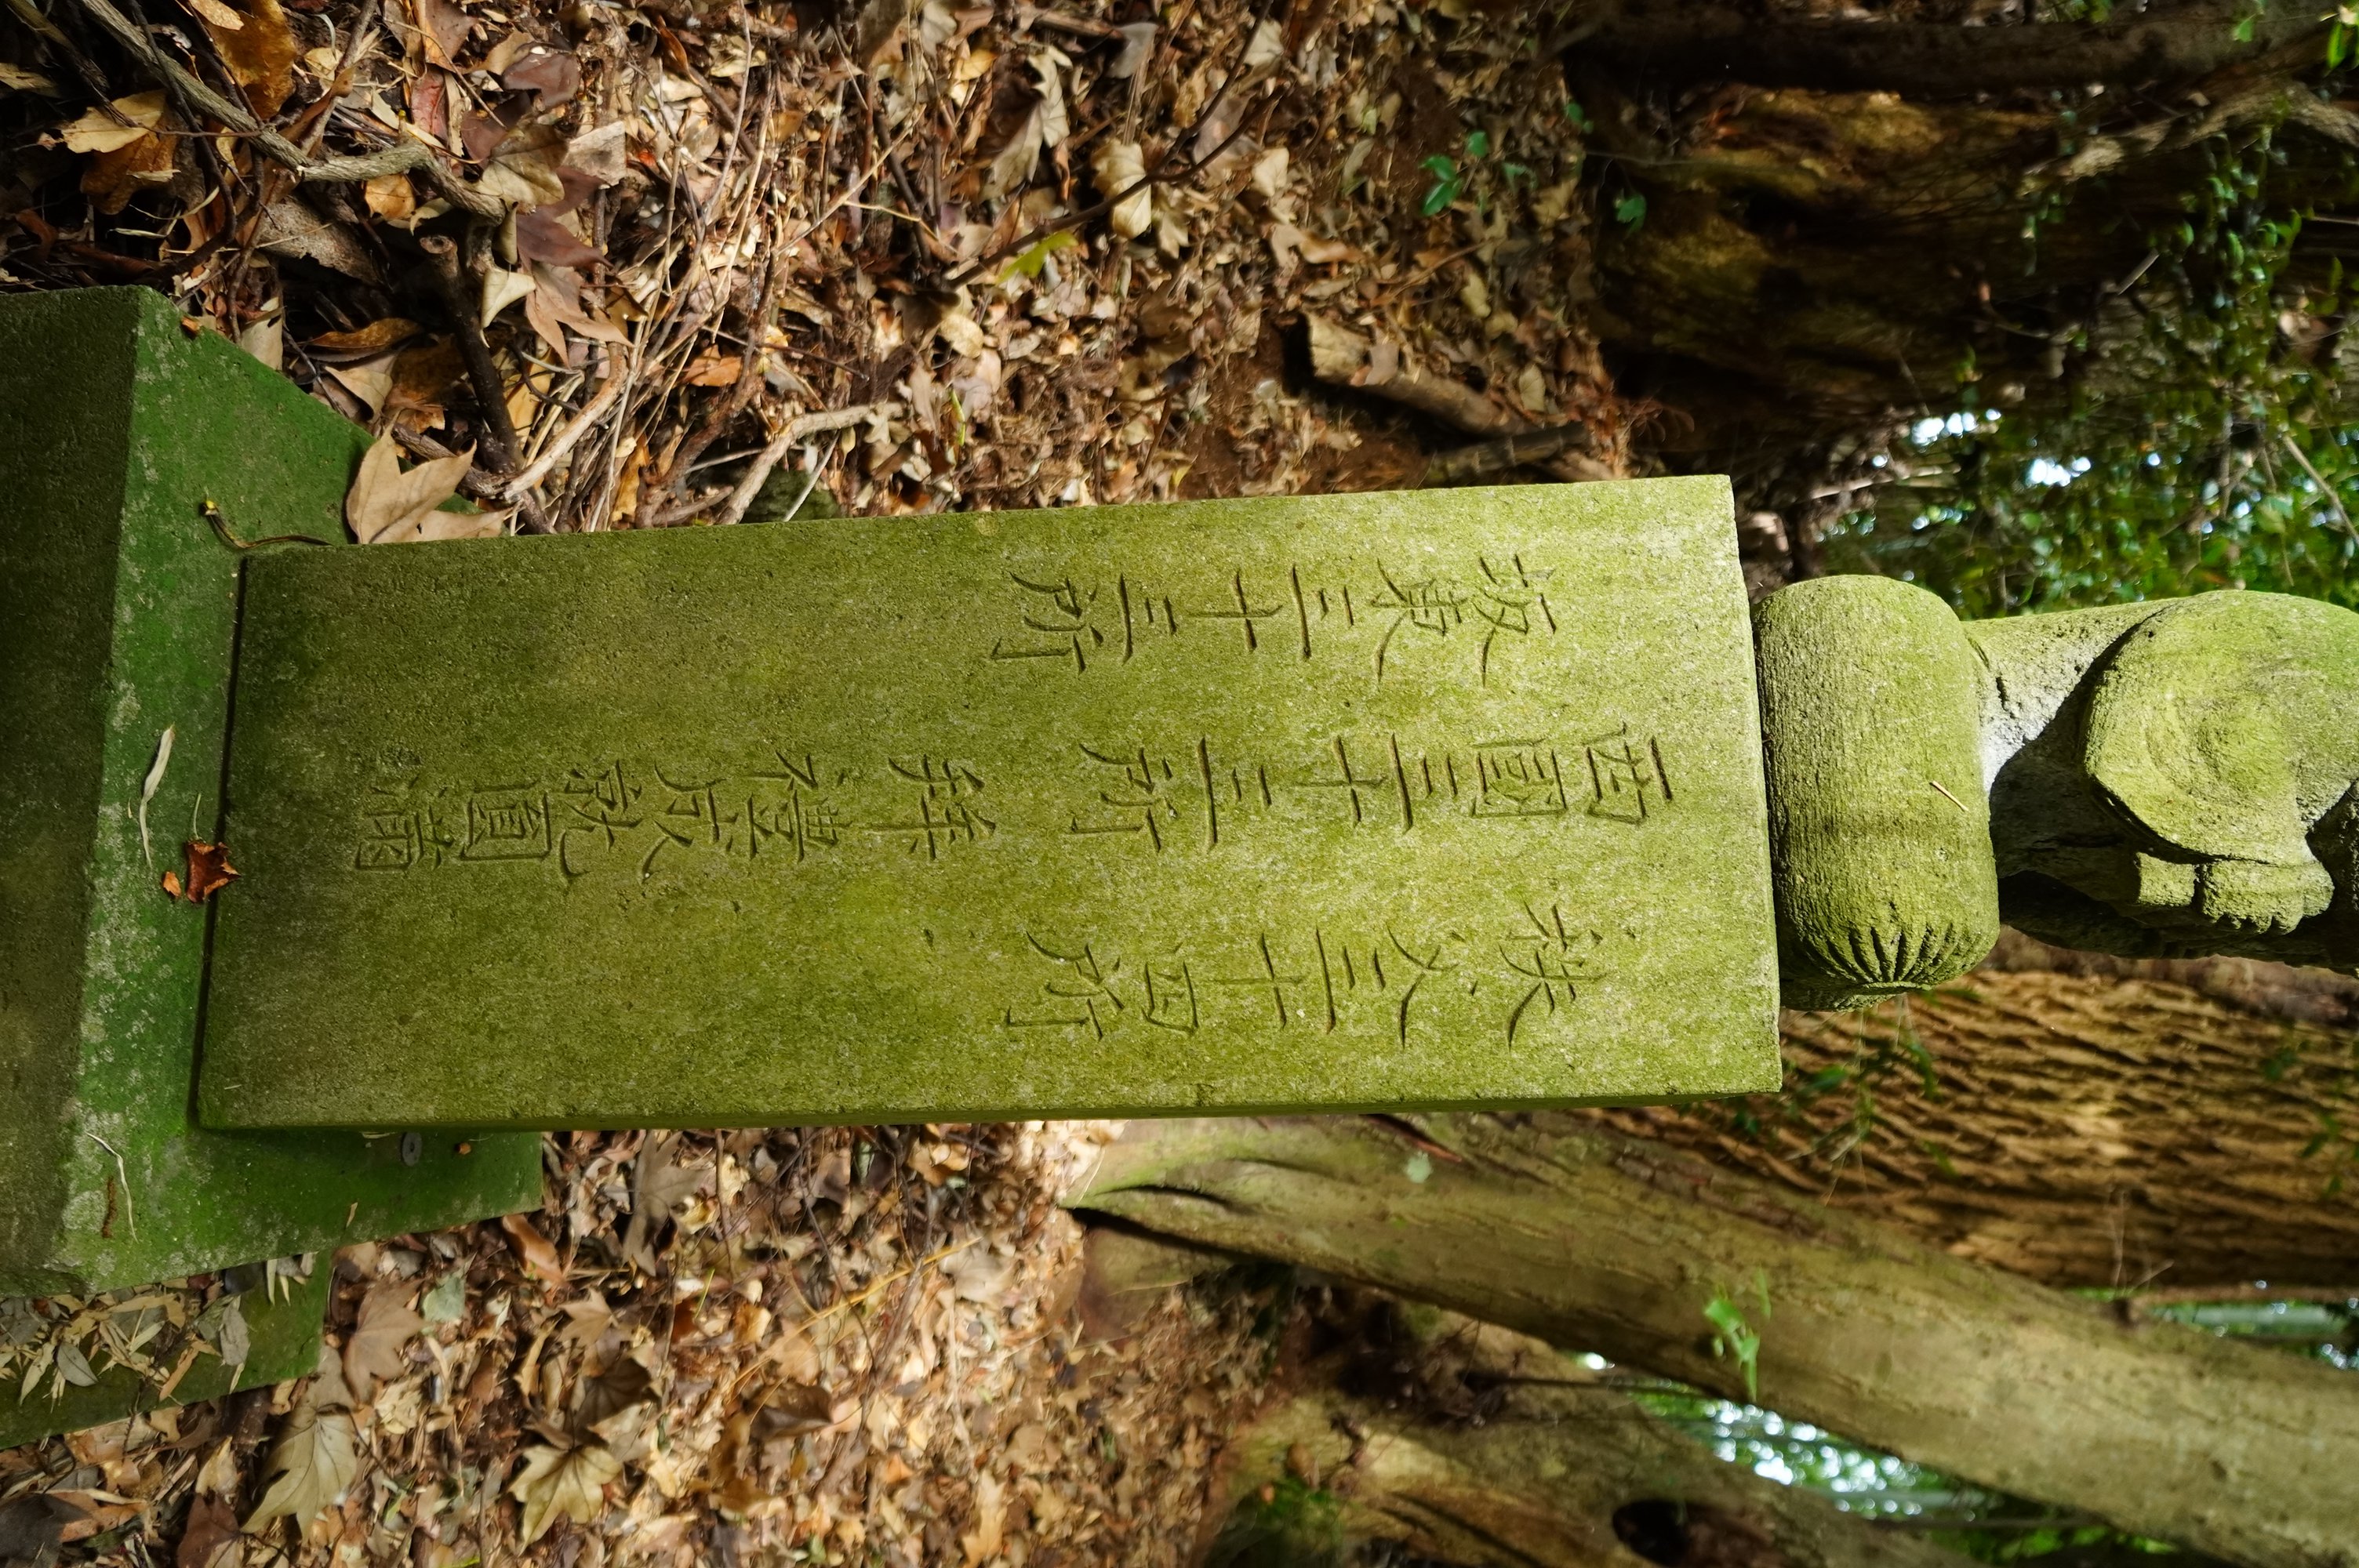 秩父三十四所
西國三十三所拜禮成就圓滿
坂東三十三所